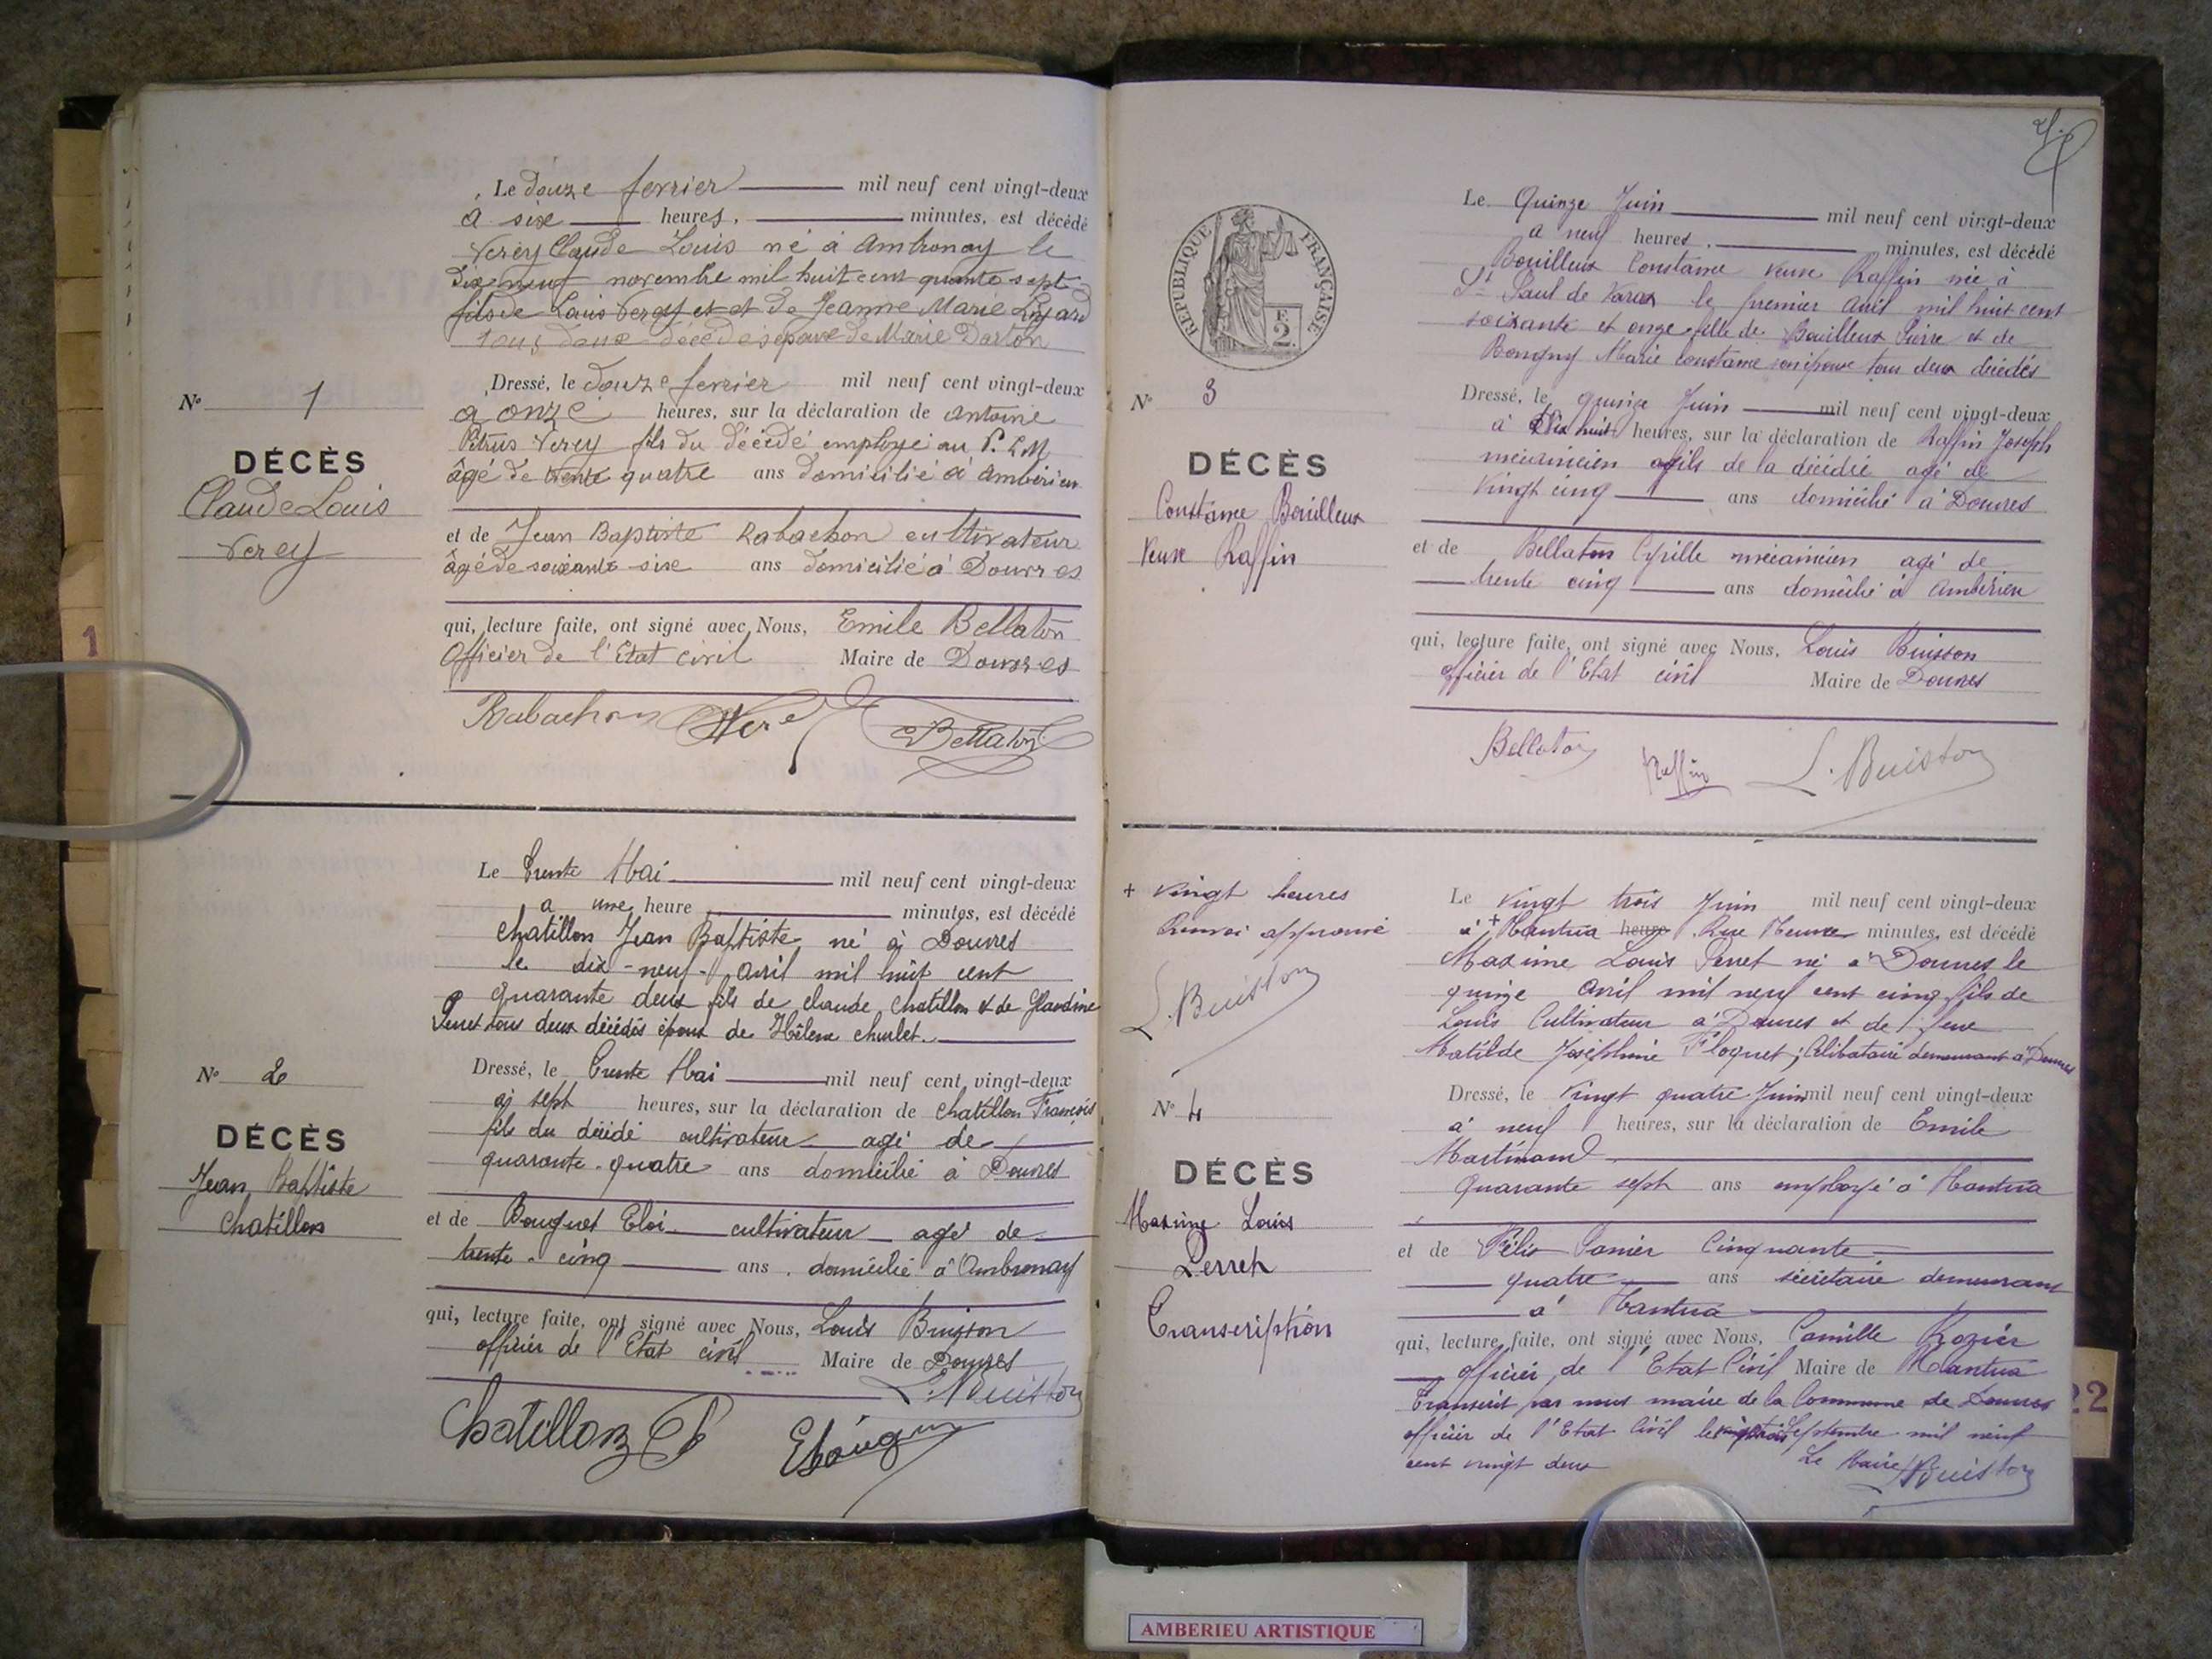 Le douze fevrier mil neuf cent vingt-deux
a six heures, minutes, est décédé
Verey Claude Louis né à Ambronay le
Dix neuf novembre mil huit cent quante sept
fils de Louis Verey et et de Jeanne Marie
tous deux décédés époux de Marie Darton
Dressé, le douze fevrier mil neuf cent vingt-deux
a onze heures, sur la déclaration de Antoine
Pétrus Verey fils du décédé employé au P.L.M
âgé de trente quatre ans domicilié à Ambérieu
et de Jean Baptiste Rabachon cultivateur
âgé de soixante six ans domicilié à Douvres
qui, lecture faite, ont signé avec Nous, Emile Bellaton
Officier de l'Etat civil Maire de Douvres
Rabachon Verey Bellaton
No 1
DÉCÈS
Claude Louis
Verey
1
Le Trente Mai mil neuf cent vingt-deux
a une heure minutes, est décédé
Chatillon Jean Baptiste né à Douvres
le dix-neuf avril mil huit cent
quarante deux fils de Claude Chatillon & de Glaudine
Perret tous deux décédés époux de Hélène Churlet.
Dressé, le Trente Mai mil neuf cent vingt-deux
à sept heures, sur la déclaration de Chatillon François
fils du décédé cultivateur agé de
quarante-quatre ans domicilié à Douvres
et de Bouguet Eloi cultivateur agé de
trente-cinq ans domicilié à Ambronay
qui, lecture faite, ont signé avec Nous, Louis Buisson
officier de l'Etat civil Maire de Douvres
L. Buisson
Chatillon
No 2
DÉCÈS
Jean Baptiste
Chatillon
7
RÉPUBLIQUE FRANÇAISE
F.
2.
Le Quinze Juin mil neuf cent vingt-deux
a neuf heures, minutes, est décédé
Bouilleux Constance veuve Raffin née à
St Paul de Varax le premier avril mil huit cent
soixante et onze fille de Bouilleux Pierre et de
Marie Constance son épouse tous deux décédés
Dressé, le quinze Juin mil neuf cent vingt-deux
à Dix huit heures, sur la déclaration de Raffin Joseph
mécanicien fils de la décédée agé de
vingt cinq ans domicilié à Douvres
et de Bellaton Cyrille mécanicien agé de
trente cinq ans domicilié à Ambérieu
qui, lecture faite, ont signé avec Nous, Louis Buisson
officier de l'Etat civil Maire de Douvres
Bellaton Raffin L. Buisson
No 3
DÉCÈS
Constance Bouilleux
Veuve Raffin
+ vingt heures
Renvoi approuvé
L. Buisson
Le vingt trois Juin mil neuf cent vingt-deux
à + Nantua heure Rue Neuve minutes, est décédé
Maxime Louis Perret né à Douvres le
quinze avril mil neuf cent cinq fils de
Louis Cultivateur à Douvres et de feue
Matilde Joséphine Floquet; Célibataire demeurant à Douvres
Dressé, le vingt quatre Juin mil neuf cent vingt-deux
à neuf heures, sur la déclaration de Emile
Martinand
quarante sept ans employé à Nantua
et de Félix Panier Cinquante
quatre ans secrétaire demeurant
à Nantua
qui, lecture faite, ont signé avec Nous, Camille Rozier
officier de l'Etat Civil Maire de Nantua
Transcrit par nous maire de la Commune de Douvres
officier de l'Etat Civil le Septembre mil neuf
cent vingt deux Le Maire Buisson
No 4
DÉCÈS
Maxime Louis
Perret
Transcription
22
AMBERIEU ARTISTIQUE